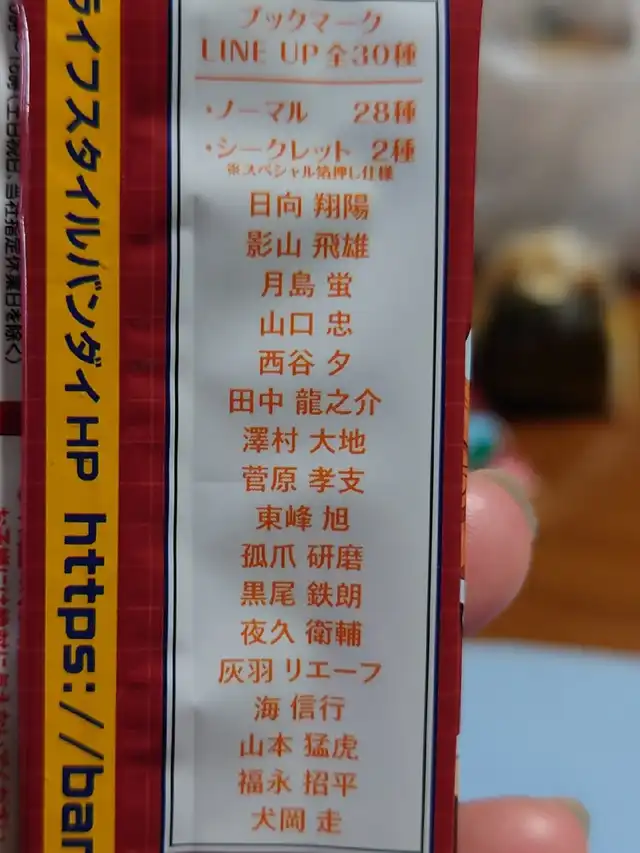 ブックマーク
LINE UP 全30種
・ノーマル 28種
・シークレット 2種
※スペシャル箔押し仕様
日向 翔陽
影山 飛雄
月島 蛍
山口 忠
西谷 夕
田中 龍之介
澤村 大地
菅原 孝支
東峰 旭
孤爪 研磨
黒尾 鉄朗
夜久 衛輔
灰羽 リエーフ
海 信行
山本 猛虎
福永 招平
犬岡 走
ライフスタイルバンダイHP https://ban
土日祝日、当社指定休業日を除く)